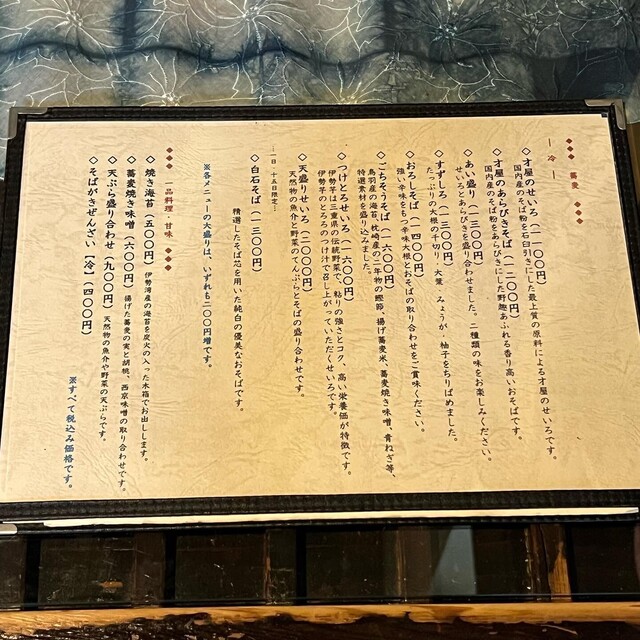 ◆◆◆ 蕎麦 ◆◆◆
― 冷 ―
◇才屋のせいろ(一一〇〇円)
国内産のそば粉を石臼引きにした最上質の原料による才屋のせいろです。
◇才屋のあらびきそば(一二〇〇円)
国内産のそば粉をあらびきにした野趣あふれる香り高いおそばです。
◇あい盛り(一三〇〇円)
せいろとあらびきを盛り合わせました。二種類の味をお楽しみください。
◇すずしろ(一三〇〇円)
たっぷりの大根の千切り、大葉、みょうが、柚子をちりばめました。
◇おろしそば(一四〇〇円)
強い辛味をもつ辛味大根とおそばの取り合わせをご賞味ください。
◇ごちそうそば(一六〇〇円)
鳥羽産の海苔、枕崎産の二年物の鰹節、揚げ蕎麦米、蕎麦焼き味噌、青ねぎ等、
特選素材を盛り込みました。
◇つけとろせいろ(一六〇〇円)
伊勢芋は三重県の伝統野菜で、粘りの強さとコク、高い栄養価が特徴です。
伊勢芋のとろろのつけ汁で召し上がっていただくせいろです。
◇天盛りせいろ(二〇〇〇円)
天然物の魚介と野菜のてんぷらとそばの盛り合わせです。
…一日 十五日限定…
◇白石そば(一三〇〇円)
精選したそば芯を用いた純白の優美なおそばです。
※各メニューの大盛りは、いずれも二〇〇円増です。
◆◆◆ 一品料理・甘味 ◆◆◆
◇焼き海苔(五〇〇円) 伊勢湾産の海苔を炭火の入った木箱でお出しします。
◇蕎麦焼き味噌(六〇〇円) 揚げた蕎麦の実と胡桃、西京味噌の取り合わせです。
◇天ぷら盛り合わせ(九〇〇円) 天然物の魚介や野菜の天ぷらです。
◇そばがきぜんざい【冷】(四〇〇円)
※すべて税込み価格です。